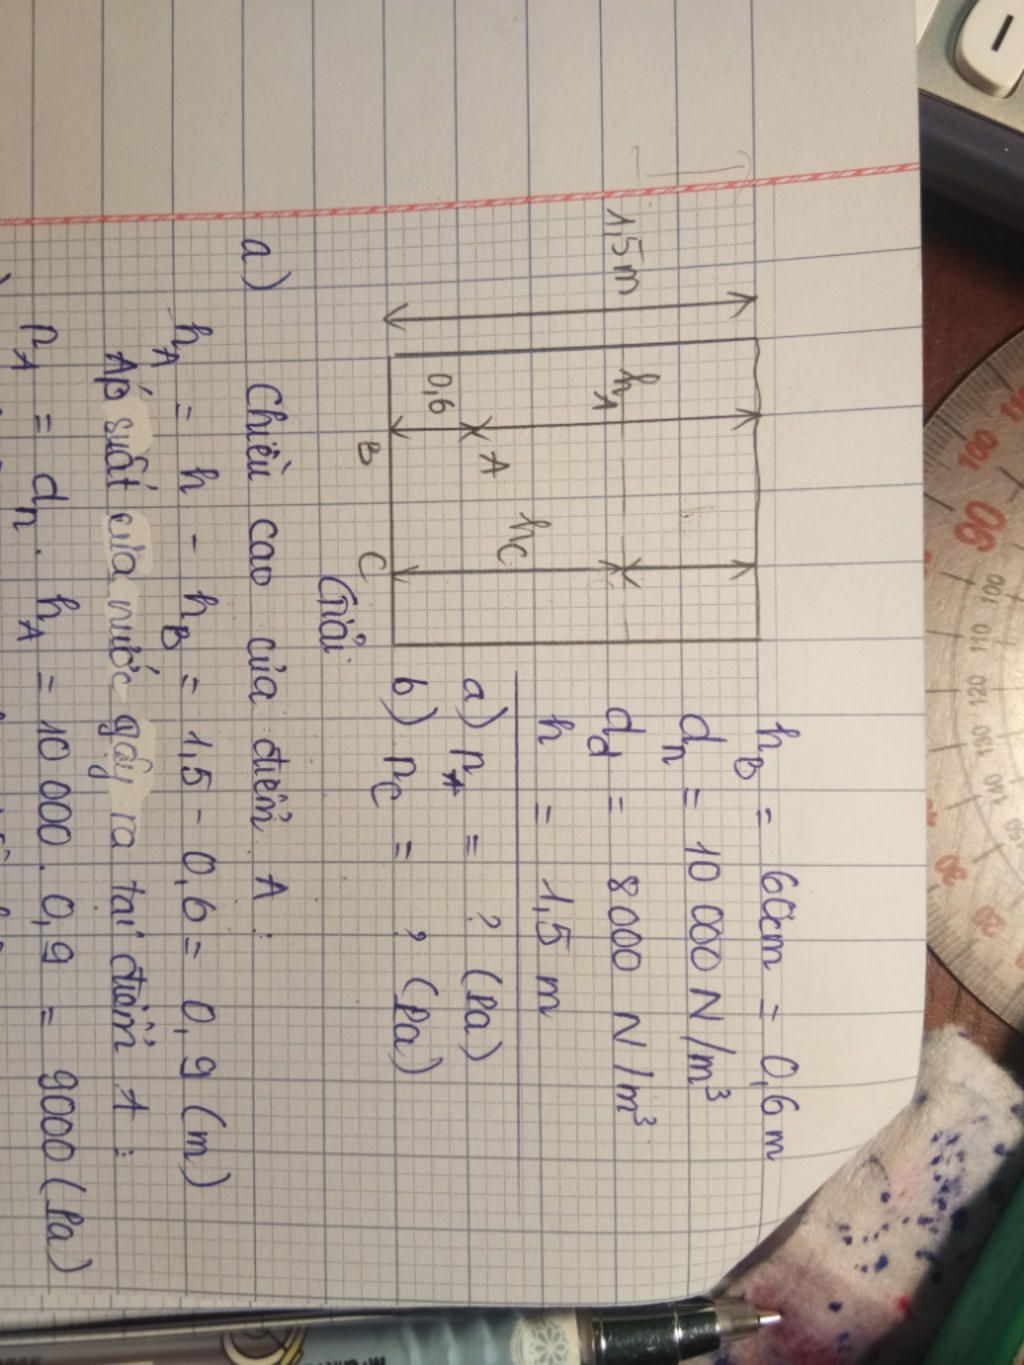 h_B = 60cm = 0,6 m
d_n = 10 000 N/m³
d_d = 8000 N/m³
h = 1,5 m
a) P_A = ? (Pa)
b) P_C = ? (Pa)
1,5m
h_1
0,6
A
h_C
B
C
Giải
a) Chiều cao của điểm A :
h_A = h - h_B = 1,5 - 0,6 = 0,9 (m)
Áp suất của nước gây ra tại điểm A :
P_A = d_n . h_A = 10 000 . 0,9 = 9000 (Pa)
110
100
90
100
110
120
130
140